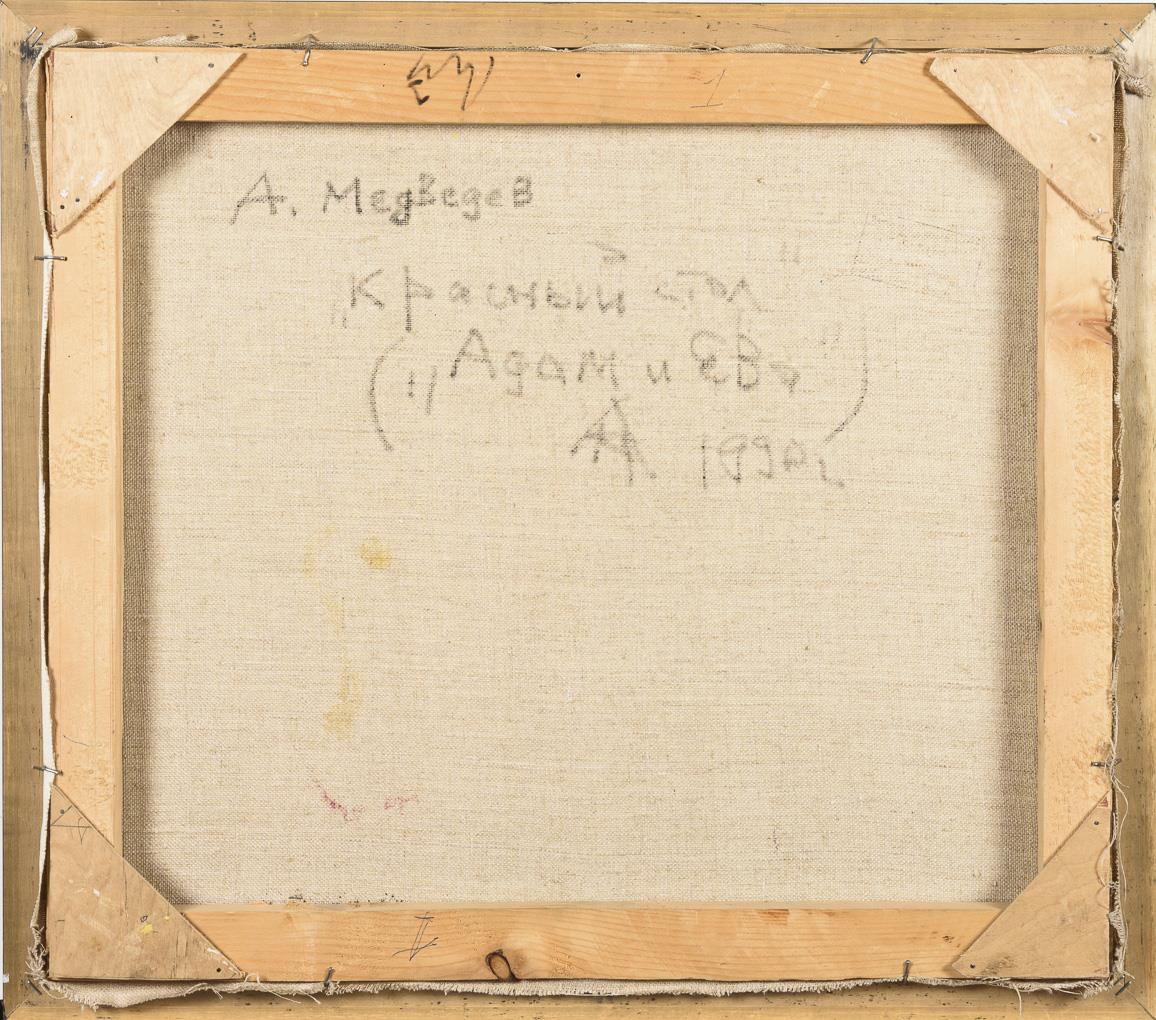 1
А. Медведев
„Красный стол"
(„Адам и Ева")
1990г.
I